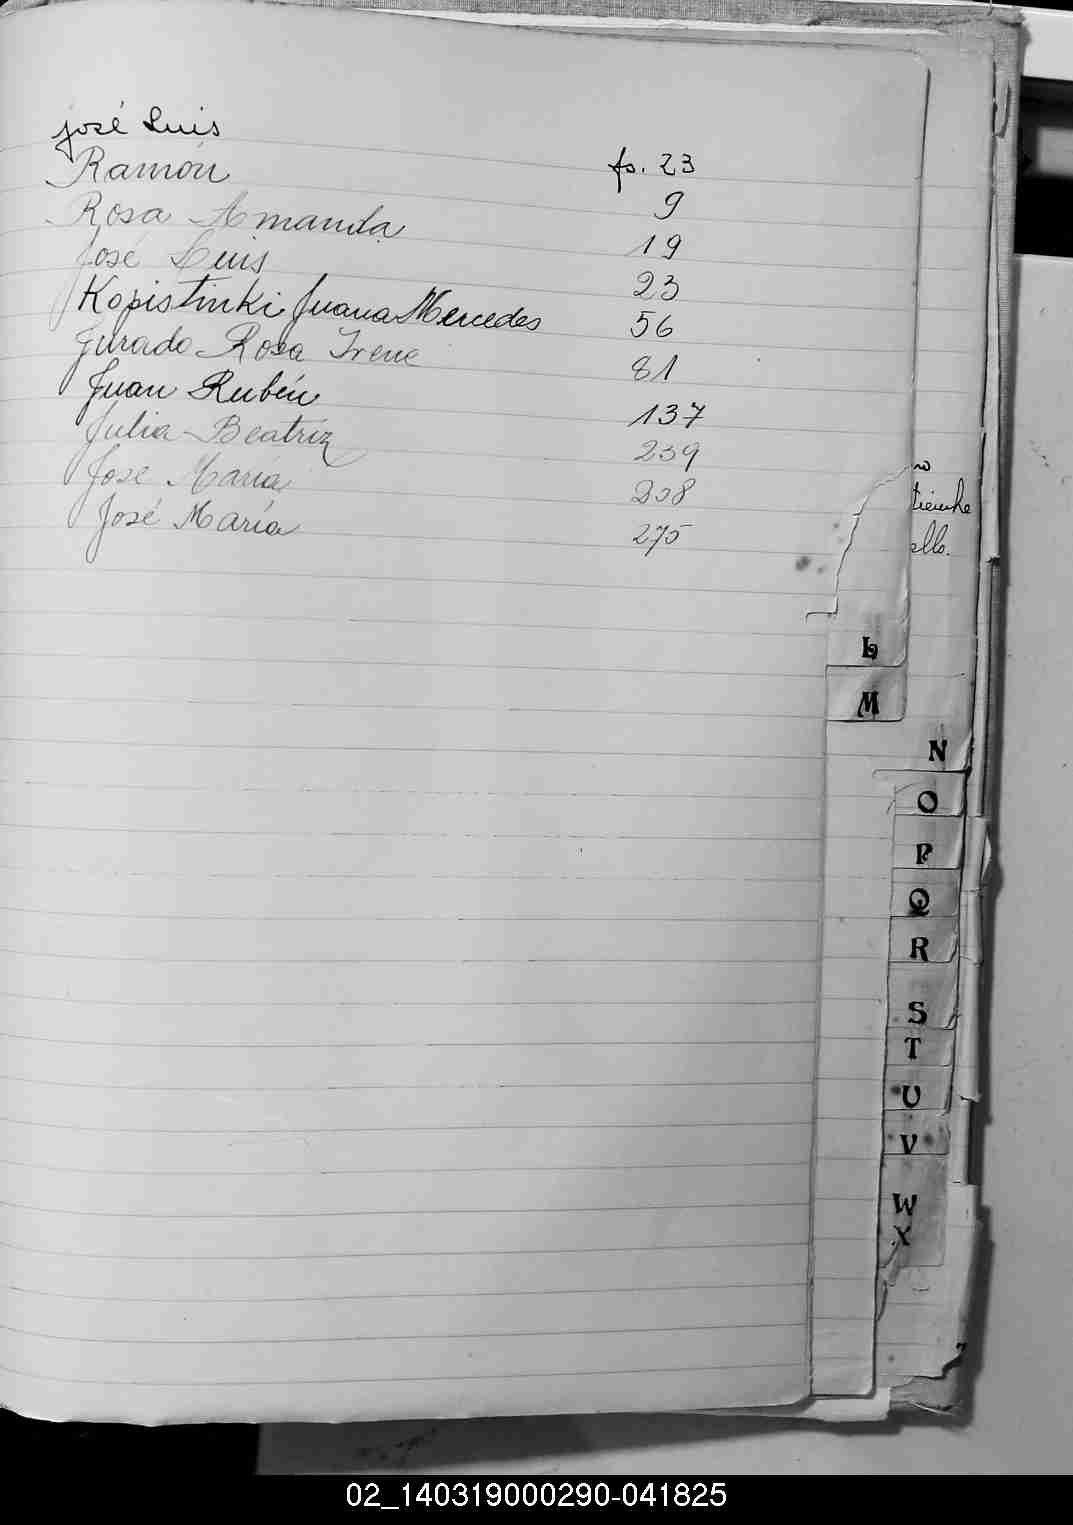 José Luis
Ramón fs. 23
Rosa Amanda 9
José Luis 19
Kopistinki Juana Mercedes 23
Jurado Rosa Irene 56
Juan Rubén 81
Julia Beatriz 137
José María 239
José María 208
275
tieinha
ello.
L
M
N
O
P
Q
R
S
T
U
V
W
X
02_140319000290-041825